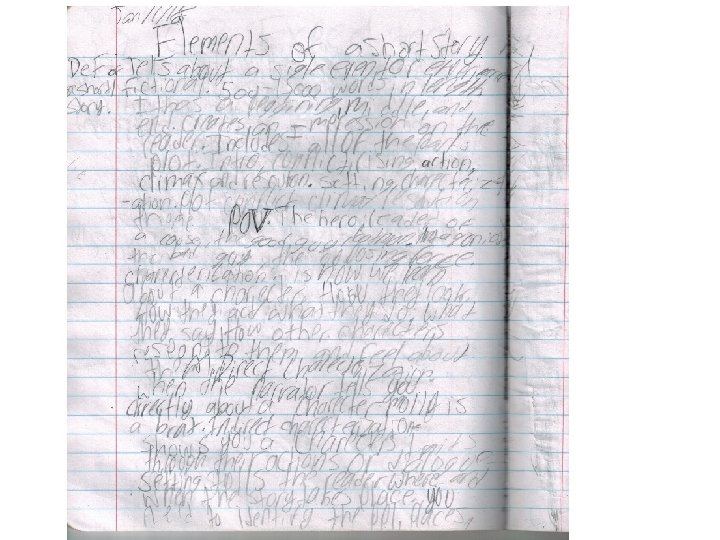 Jan/11/
Elements of a short story
Define Tels about a sigle event or
a short fictional. 500-1500 words in length
story. It has a beginning, middle, and
end. Creates an impression on the
reader. Includes all of the parts
plot. Intro conflict, rising action,
climax and resolution. Setting, characteriz
-ation. plot conflict climax resolution
POV. The hero, leader of
a cause, the good guy.
the bad guy, the opposing force.
characterization, is how we learn
about a character. How they look,
How they act what they do, what
they say How other characters
respong to them and feel about
Direct characterization-
when the narrator tells you
directly about a character Molly is
a brat. Indirect characterization-
shows you a character
through their actions or dialogue-
setting tells the reader where and
when the story takes place. you
need to identify the places,